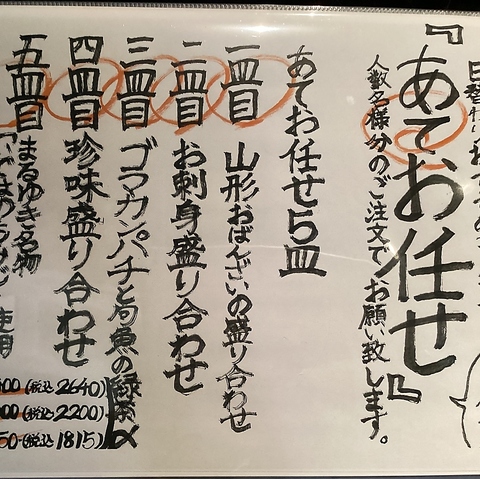 『あてお任せ』
人数名様分のご注文でお願い致します。
あてお任せ5皿
一皿目 山形おばんざいの盛り合わせ
二皿目 お刺身盛り合わせ
三皿目 ゴマカンパチと旬魚の緑茶〆
四皿目 珍味盛り合わせ
五皿目 まるゆき名物
00(税込2640)
00(税込2200)
50(税込1815)